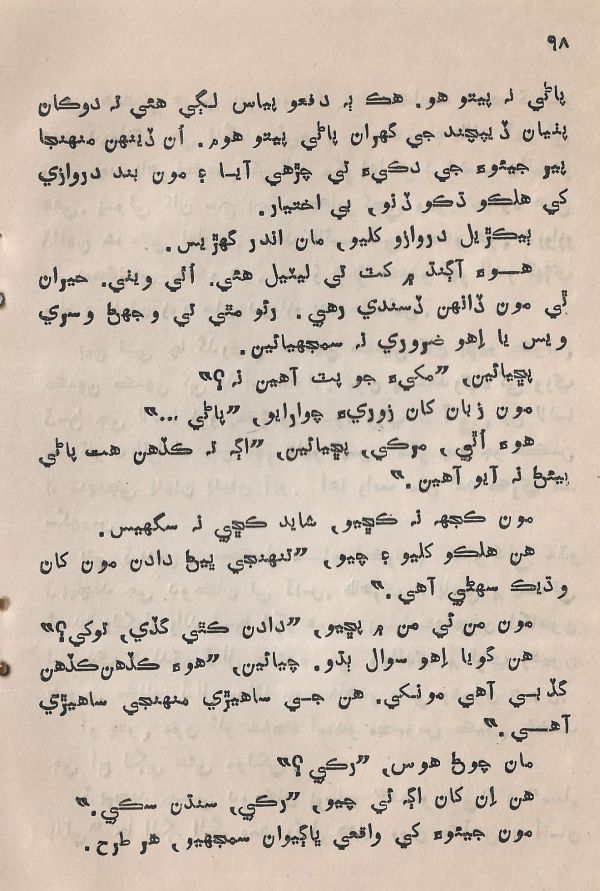 ۹۸
پاڻي نہ پيتو هو. هڪ ٻہ دفعو پياس لڳي هئي تہ دوڪان
پٺيان ڏيپچند جي گهران پاڻي پيتو هوم. اُن ڏينهن منهنجا
پير جيٺوءَ جي دڪيءَ تي چڙهي آيا ۽ مون بند دروازي
کي هلڪو ڌڪو ڏنو، بي اختيار.
ٻيڪڙيل دروازو کليو، مان اندر گهڙيس.
هوءَ آڳنڌ ۾ کٽ تي ليٽيل هئي. اُٿي ويٺي. حيران
ٿي مون ڏانهن ڏسندي رهي. رئو مٿي تي وجهڻ وسري
ويس يا اِهو ضروري نہ سمجهيائين.
پڇيائين، ”مکيءَ جو پٽ آهين نہ؟“
مون زبان کان زوريءَ چوارايو، ”پاڻي ...“
هوءَ اُٿي، مرڪي، پڇيائين، ”اڳہ تہ ڪڏهن هت پاڻي
پيئڻ نہ آيو آهين.“
مون ڪجهہ نہ ڪڇيو، شايد ڪڇي نہ سگهيس.
هن هلڪو کليو ۽ چيو، ”تنهنجي ڀيڻ دادن مون کان
وڌيڪ سهڻي آهي.“
مون من ئي من ۾ پڇيو، ”دادن ڪٿي گڏي، توکي؟“
هن گويا اِهو سوال ٻڌو. چيائين، ”هوءَ ڪڏهن ڪڏهن
گڏبي آهي مونکي. هن جي ساهيڙي منهنجي ساهيڙي
آهي.“
مان چوڻ هوس، ”رکي؟“
هن اِن کان اڳہ ئي چيو، ”رکي، سنڌن سکي.“
مون جيٺوءَ کي واقعي ڀاڳيوان سمجهيو، هر طرح.